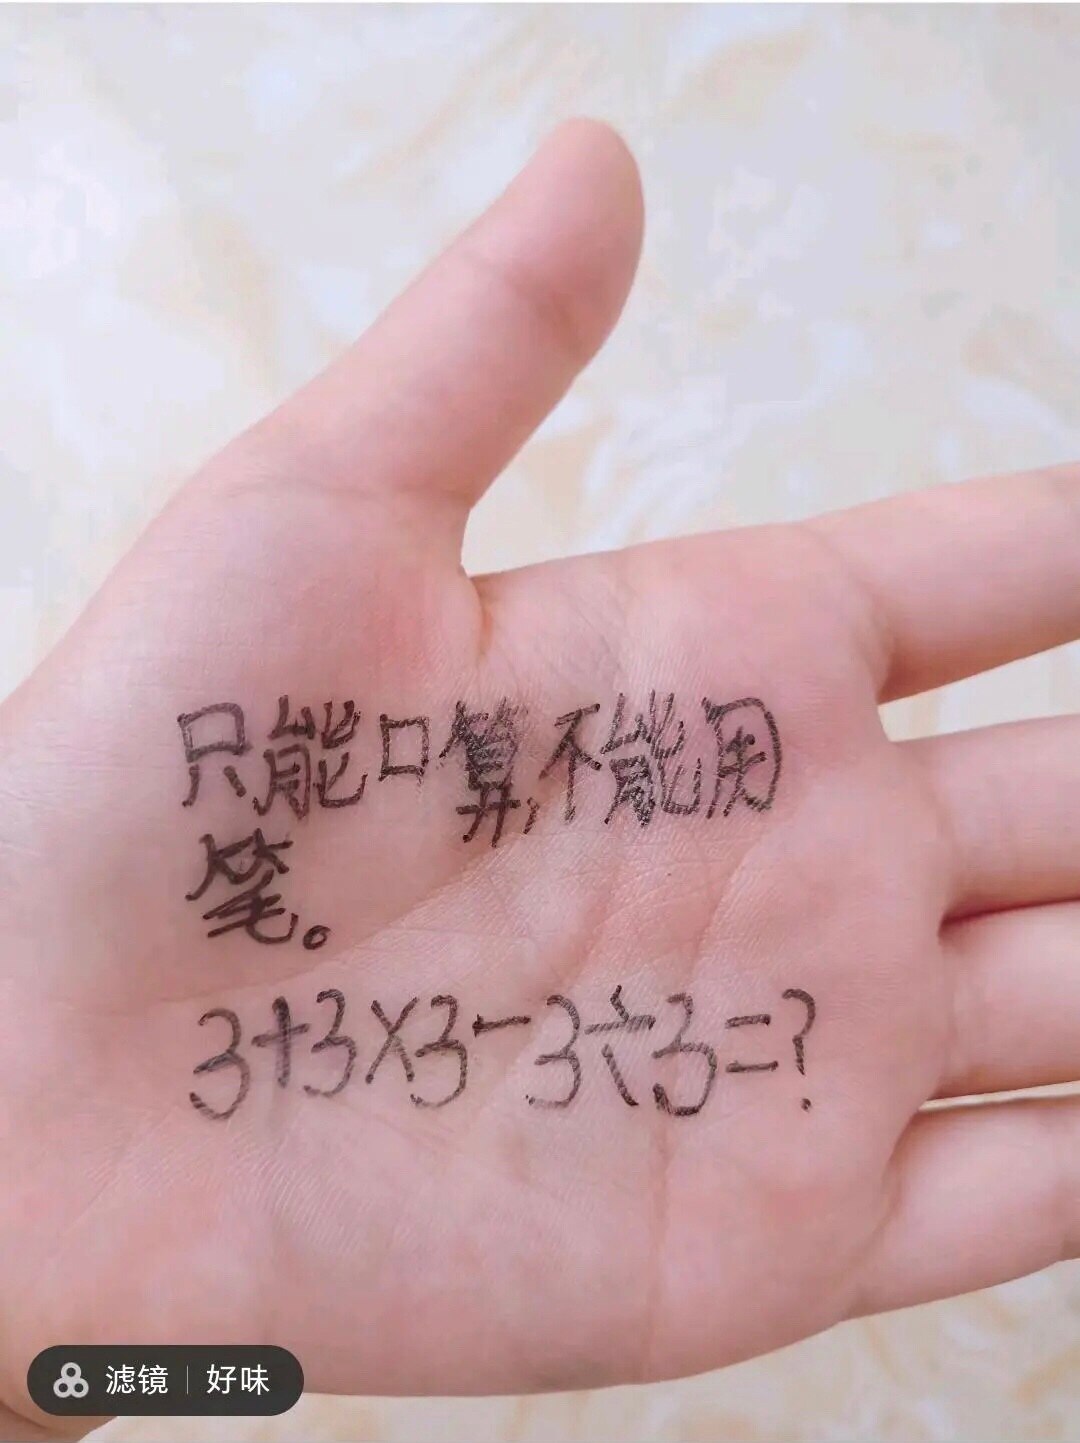 只能口算,不能用
笔。
3+3×3-3÷3=?
滤镜 | 好味